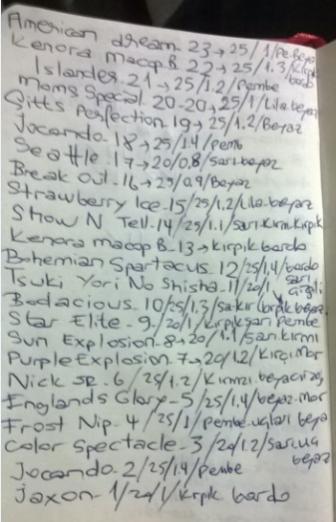 American dream 23→25/1/Pe-Beyaz
Kenora Macop B 22→25/1.3/Kirpik bordo
Islander 21→25/1.2/Pembe
Moms Special 20-20→25/1/Lila beyaz
Gitts Perfection 19→25/1.2/Beyaz
Jocando-18→25/1.4/pemb
Seattle 17→20/0.8/sarı beyaz
Break out-16→25/0.9/Beyaz
Strawberry Ice-15/25/1.2/Lila-beyaz
Show N Tell-14/25/1.1/sarı Kırm-kirpik
Kenora macop B-13→kirpik bordo
Bohemian Spartacus 12/25/1.4/bordo
Tsuki Yori No Shisha-11/20/1 sarı çizgili
Bodacious 10/25/1.3/sa-kır kirpik beyaz
Star Elite-9/20/1/kirpik sarı pembe
Sun Explosion-8→20/1.1/sarı kırmı
Purple Explosion-7→20/1.2/Kır,çi mor
Nick sr-6/25/1.2/Kırmzı beyaz
Englands Glory-5/25/1.4/beyaz-mor
Frost Nip-4/25/1/Pembe-uçları beya
Color Spectacle-3/20/1.2/sarı,uç beyaz
Jocando-2/25/1.4/Pembe
Jaxon-1/20/1/Krpik bordo